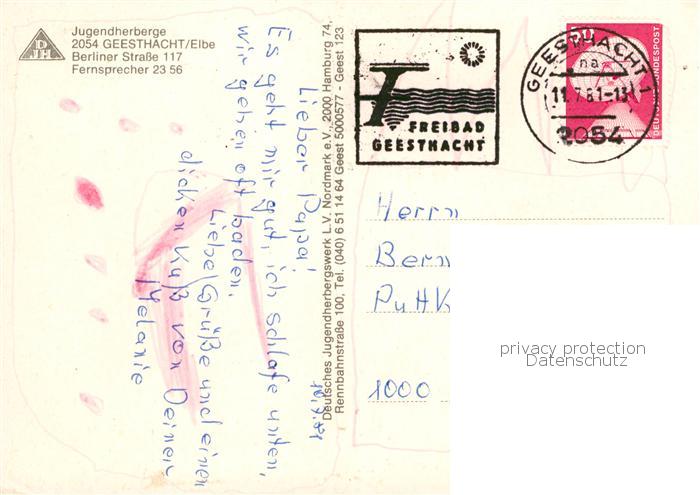 Jugendherberge
2054 GEESTHACHT/Elbe
Berliner Straße 117
Fernsprecher 23 56
DJH
FREIBAD
GEESTHACHT
GEESTHACHT 1
na
11.7.81-13
2054
50
DEUTSCHE BUNDESPOST
10.7.81
Lieber Papa!
Es geht mir gut, ich schlafe unten,
wir gehen oft baden.
Liebe Grüße und einen
dicken Kuß von Deiner
Melanie
Deutsches Jugendherbergswerk L.V. Nordmark e.V., 2000 Hamburg 74,
Rennbahnstraße 100, Tel. (040) 6 51 14 64 Geest 5000577 - Geest 123
Herrn
Bern
PuttK
1000
privacy protection
Datenschutz